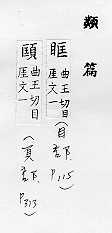 類篇
眶 曲王切目厓文一 (目部 P.115)
曲王切目厓文一 (頁部 P.313)